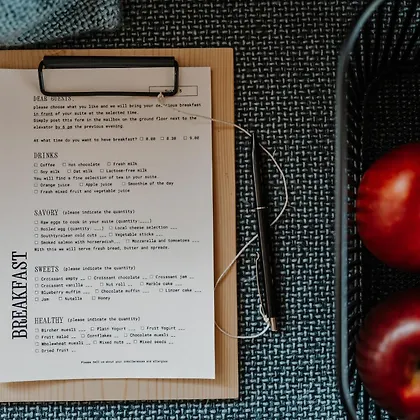 DEAR GUESTS,
please choose what you like and we will bring your delicious breakfast
in front of your suite at the selected time.
Simply post this form in the mailbox on the ground floor next to the
elevator by 6 pm the previous evening.
At what time do you want to have breakfast? ☐ 8.00 ☐ 9.00
DRINKS
☐ Coffee ☐ Hot chocolate ☐ Fresh milk
☐ Soy milk ☐ Oat milk ☐ Lactose-free milk
You will find a fine selection of tea in your suite
☐ Orange juice ☐ Apple juice ☐ Smoothie of the day
☐ Fresh mixed fruit and vegetable juice
SAVORY (please indicate the quantity)
☐ Raw eggs to cook in your suite (quantity ___)
☐ Boiled egg (quantity: ___) ☐ Local cheese selection __
☐ Southtyrolean cold cuts __ ☐ Vegetable sticks __
☐ Smoked salmon with horseradish __ ☐ Mozzarella and tomatoes __
With this we will serve fresh bread, butter and spreads.
SWEETS (please indicate the quantity)
☐ Croissant empty __ ☐ Croissant chocolate __ ☐ Croissant jam __
☐ Croissant vanilla __ ☐ Nut roll __ ☐ Marble cake __
☐ Blueberry muffin __ ☐ Chocolate muffin __ ☐ Linzer cake __
☐ Jam ☐ Nutella ☐ Honey
HEALTHY (please indicate the quantity)
☐ Bircher muesli __ ☐ Plain Yogurt __ ☐ Fruit Yogurt __
☐ Fruit salad __ ☐ Cornflakes __ ☐ Chocolate muesli __
☐ Wholewheat muesli __ ☐ Mixed nuts __ ☐ Mixed seeds __
☐ Dried fruit __
Please tell us about your intolerances or allergies
BREAKFAST